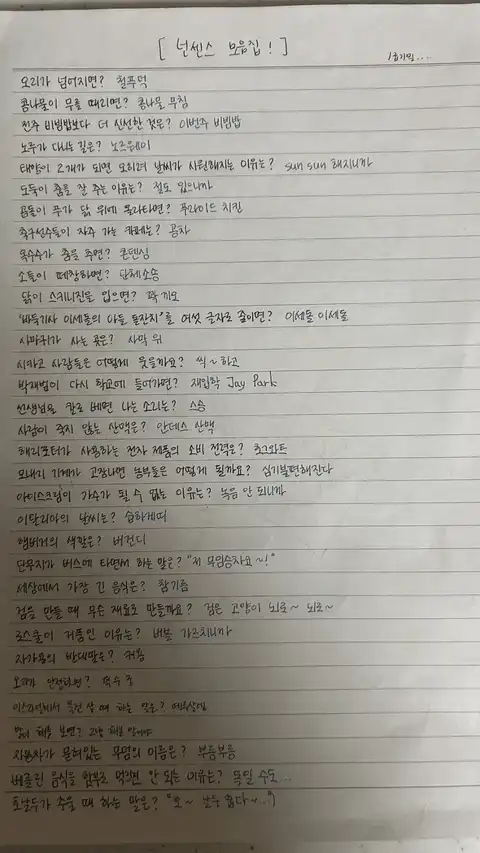 [ 넌센스 모음집! ]
오리가 넘어지면? 철푸덕
콩나물이 무를 때리면? 콩나물 무침
전주 비빔밥보다 더 신선한 것은? 이번주 비빔밥
노루가 다니는 길은? 노즈웨이
태양이 2개가 되면 오히려 날씨가 시원해지는 이유는? sun sun 해지니까
도둑이 춤을 잘 추는 이유는? 절도 있으니까
곰돌이 푸가 닭 위에 올라타면? 푸라이드 치킨
축구선수들이 자주 가는 카페는? 공차
옥수수가 춤을 추면? 콘댄싱
소들이 떼창하면? 단체소송
닭이 스키니진을 입으면? 꽉 끼오
'바둑기사 이세돌의 아들 돌잔치'를 여섯 글자로 줄이면? 이세돌 이세돌
사마귀가 사는 곳은? 사막 위
시카고 사람들은 어떻게 웃을까요? 씩~하고
박재범이 다시 학교에 들어가면? 재입학 Jay Park
선생님을 칼로 베면 나는 소리는? 스승
사람이 죽지 않는 산맥은? 안데스 산맥
해리포터가 사용하는 전자 제품의 소비 전력은? 호그와트
모내기 기계가 고장나면 농부들은 어떻게 될까요? 심기불편해진다
아이스크림이 가수가 될 수 없는 이유는? 녹음 안 되니까
이탈리아의 날씨는? 습하게띠
햄버거의 색깔은? 버건디
단무지가 버스에 타면서 하는 말은? "저 무임승차요~!"
세상에서 가장 긴 음식은? 참기름
검을 만들 때 무슨 재료로 만들까요? 검은 고양이 뇌로~ 뇌로~
로스쿨이 거품인 이유는? 버블 가르치니까
자가용의 반대말은? 커용
이스라엘에서 물건 살 때 하는 말은? 예루살렘
사용자가 묻혀있는 무덤의 이름은? 부릉부릉
베를린 음식을 함부로 먹으면 안 되는 이유는? 독일 수도...
호날두가 추울 때 하는 말은? "호~ 날두 춥다~..."